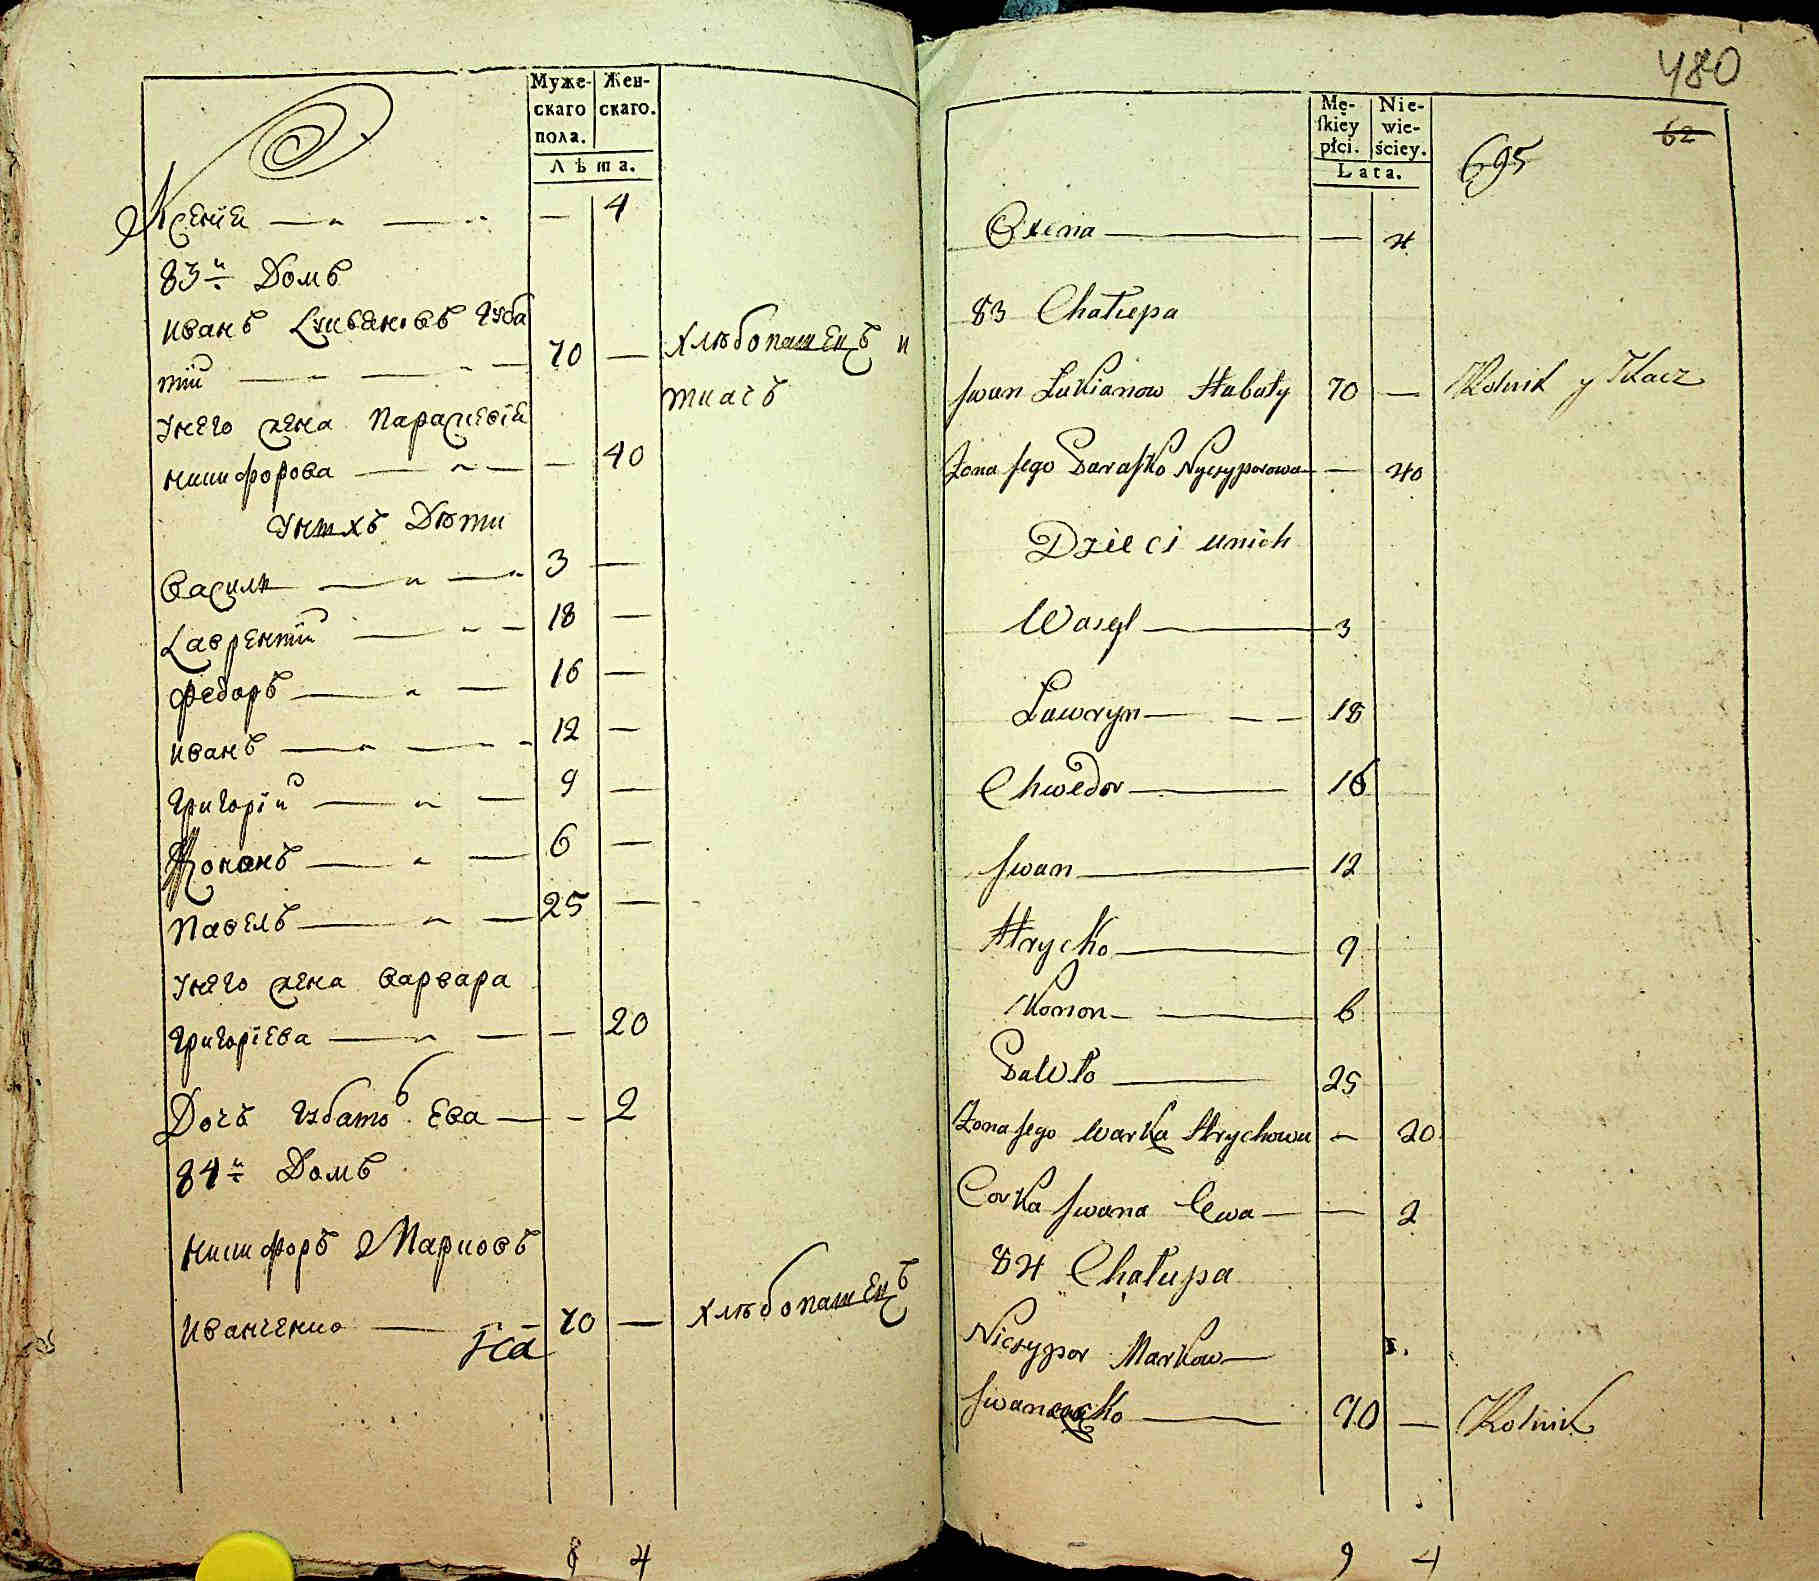 Муже- Жен-
скаго скаго.
пола.
Лѣта.
Ксенія — — 4
83й Домъ
Иванъ Лукьяновъ Губа
тій — 70 — Хлѣбопашецъ и
ткачъ
Унего жена Параскевія
Никифорова — — 40
Унихъ Дѣти
Василій — 3 —
Лаврентій — 18 —
Федоръ — 16 —
Иванъ — 12 —
Григорій — 9 —
Кононъ — 6 —
Павелъ — 25 —
Унего жена Варвара
Григоріева — — 20
Дочь Губатов Ева — — 2
84й Домъ
Никифоръ Марковъ
Иванченко — 70 — Хлѣбопашецъ
8 4
480
Mę- Nie-
ſkiey wie-
płci. ściey.
Lata.
62
695
Oxena — — 4
83 Chałupa
Jwan Łukianow Hubaty 70 — Rolnik y Tkacz
Zona jego Paraſko Nyczyporowa — 40
Dzieci unich
Wasyl — 3
Ławryn — 18
Chwedor — 16
Jwan — 12
Hrycko — 9
Konon — 6
Pawło — 25
Zona jego Warka Hrychowa — 20
Corka Jwana Ewa — — 2
84 Chałupa
Niczypor Markow —
70 — Rolnik
9 4